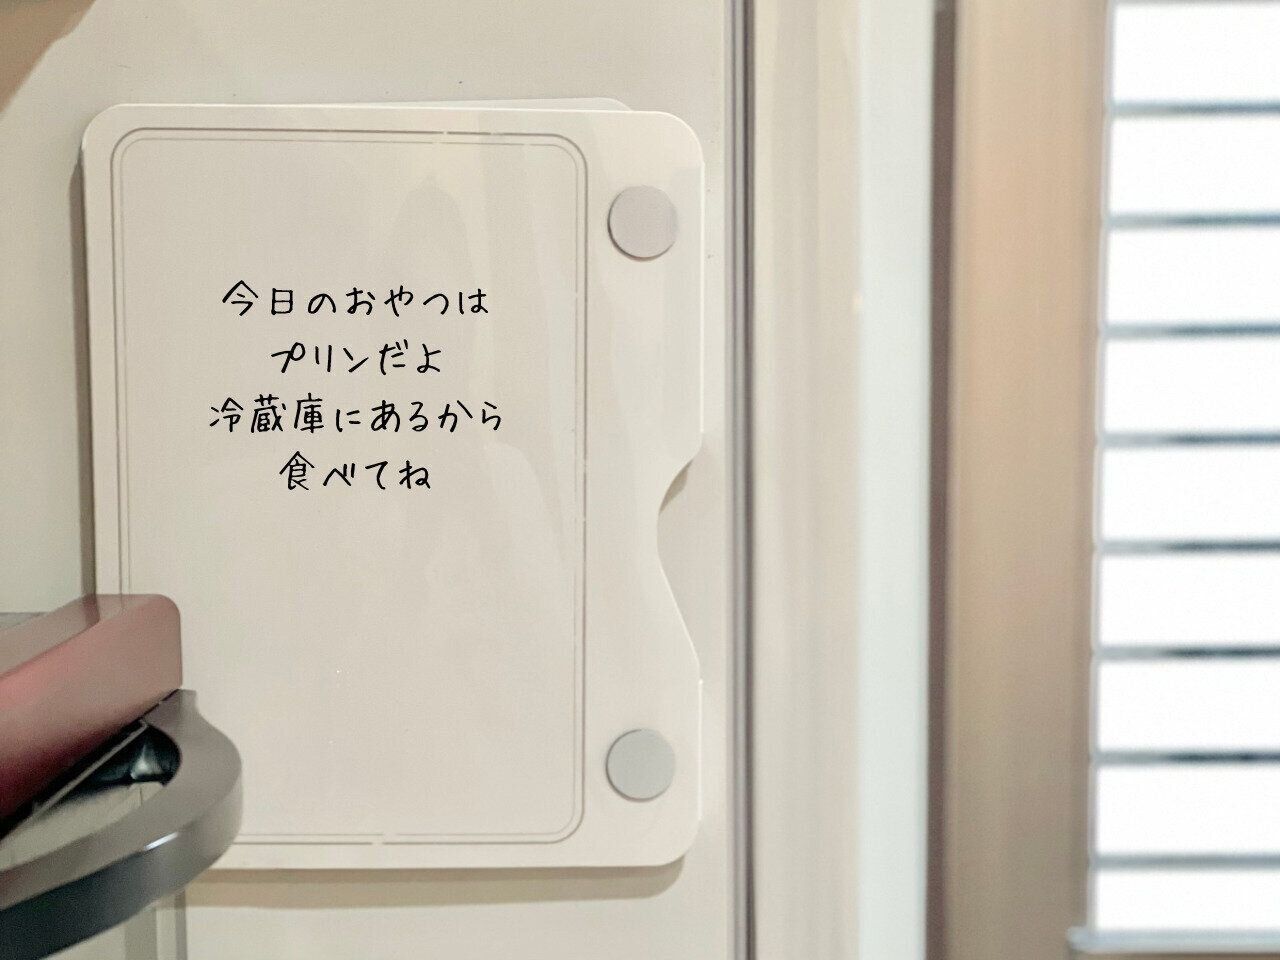 今日のおやつは
プリンだよ
冷蔵庫にあるから
食べてね